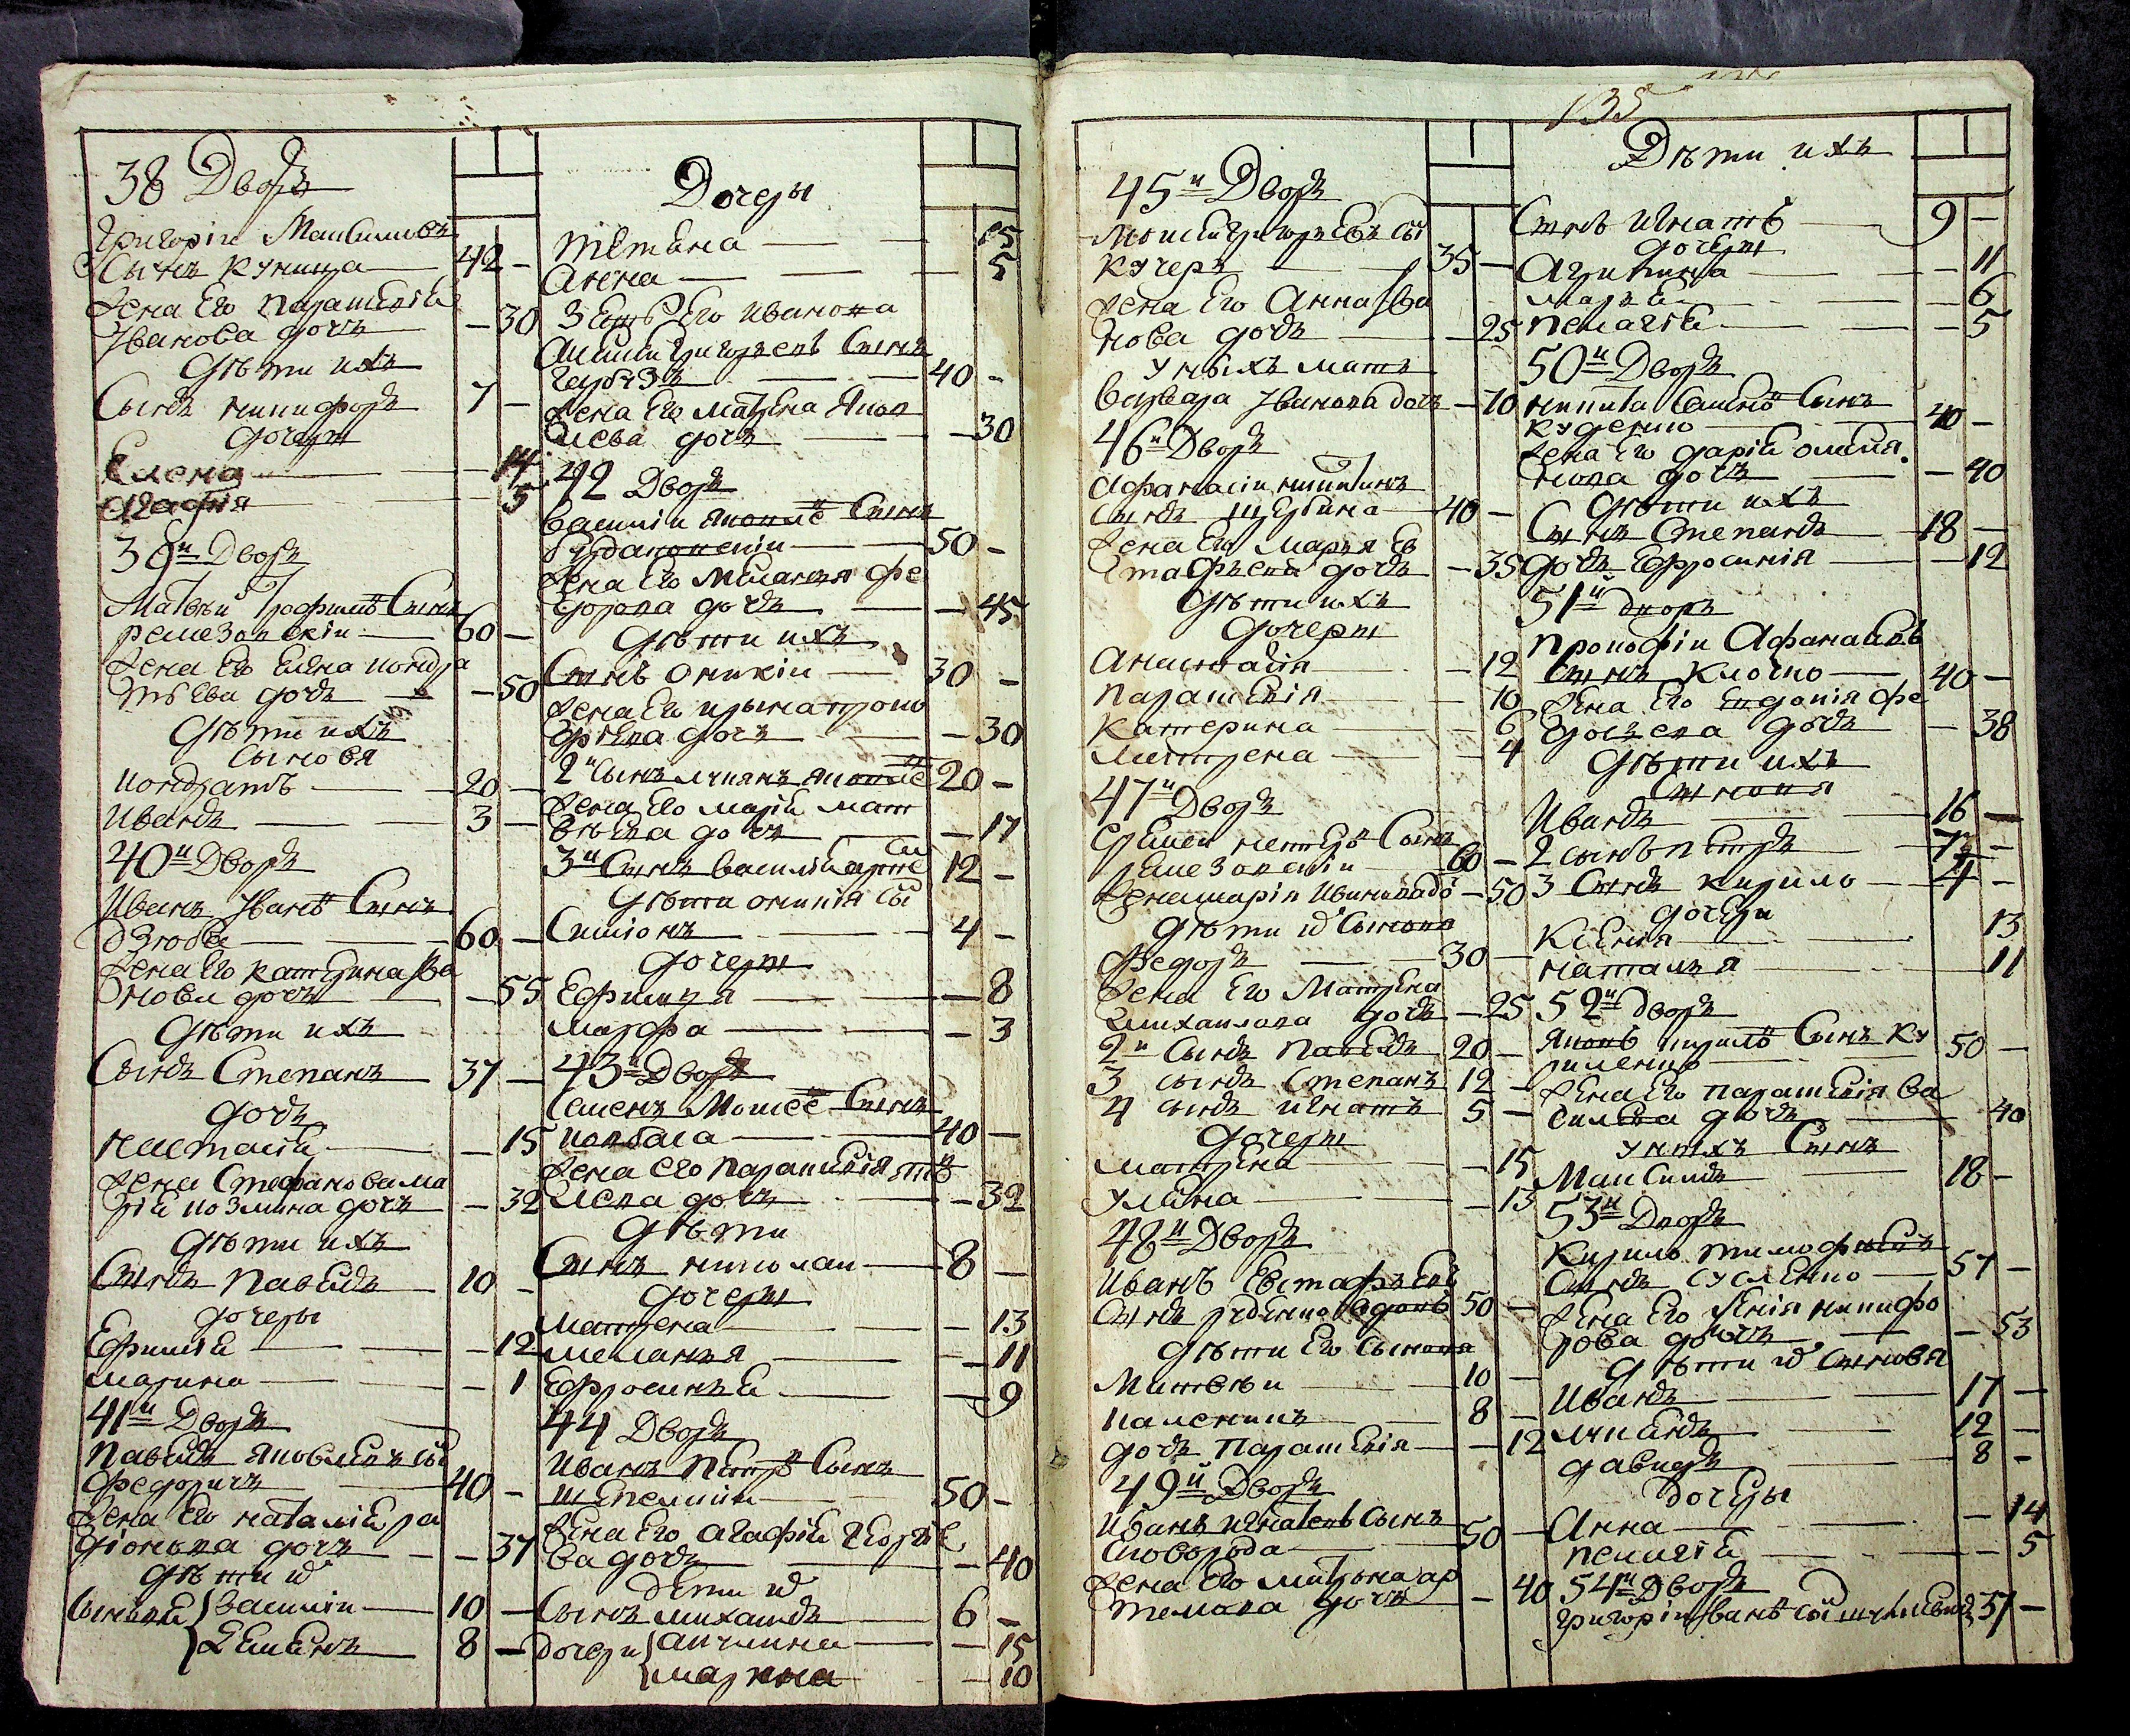 38 Дворъ
Григорій Максимовъ
Сынъ куница — 42 -
Жена Его параскевія
Іванова дочь - 30
Дѣти ихъ
Сынъ никифоръ 7 -
дочеры
Елена — 14
агафія — 5
39й Дворъ
Матвѣй Трофимовъ Сынъ
60 -
Жена Его
дочь — - 50
Дѣти ихъ
Сыновя
кондратъ — 20 -
Иванъ — 3 -
40й Дворъ
Иванъ Івановъ Сынъ
дзюба — 60 -
Жена Его катерина Ива
нова дочь — - 55
Дѣти ихъ
Сынъ Степанъ 37 -
дочь
настасія — - 15
Жена Стефанова ма
рія козмина дочь - 32
Дѣти ихъ
Сынъ павелъ 10 -
дочеры
Ефимія — - 12
марина — - 1
41й Дворъ
павелъ яковлевъ сы
федоричъ — 40 -
Жена Его наталія ра
діонова дочь - 37
Дѣти ихъ
Сыновя василій — 10 -
Семенъ 8 -
Дочеры
тетяна — 15
Анна — 5
Зеть Его
Григорьевъ Сынъ
40 -
Жена Его матрена Яков
лева дочь — - 30
42 Дворъ
василій Сынъ
— 50 -
Жена Его меланья фе
дорова дочь — - 45
Дѣти ихъ
Сынъ — 30 -
Жена Его
дочь — - 30
2й Сынъ лукянъ 20 -
Жена Его марія мат
вѣева дочь — - 17
3й Сынъ василій 12 -
Дѣти
Симіонъ — 4 -
дочеры
Ефимия — - 8
марфа — - 3
43й Дворъ
Семенъ Сынъ
ковбаса — 40 -
Жена его параскевія
дочь — - 32
Дѣти
Сынъ николай — 8 -
дочеры
матрена — - 13
меланья — - 11
Ефросинья — - 9
44 Дворъ
Иванъ петровъ Сынъ
50 -
Жена Его агафія
ва дочь — - 40
Дети ихъ
Сынъ михаилъ 6 -
дочери акулина — - 15
марина - 10
135
45й Дворъ
Моисей григорьевъ сы
кучеръ — 35 -
Жена Его Анна Ива
нова дочь — - 25
У нихъ мать
варвара Іванова дочь - 70
46й Дворъ
Афанасій никитинъ
Сынъ щербина — 40 -
Жена Его Марья Ев
стафьева дочь - 35
Дѣти ихъ
дочеры
Анастасія — - 12
параскевія — 10
катерина — - 6
матрена — 4
47й Дворъ
Сынъ
60 -
Жена марія иванова до - 50
Дѣти ихъ Сыновя
федоръ — 30 -
Жена Его Матрена
михаилова дочь - 25
2й Сынъ павелъ 20 -
3 сынъ Степанъ 12 -
4 сынъ игнатъ 5 -
дочеры
матрена — - 15
Уляна — - 13
48й Дворъ
Иванъ Евстафьевъ
Сынъ вдовъ 50 -
Дѣти Его Сыновя
Матвѣй — 10 -
8 -
дочь параскевія - 12
49й Дворъ
Иванъ игнатовъ Сынъ
Сковорода — 50 -
Жена Его матрона ар
темова дочь - 40
Дѣти ихъ
Сынъ игнатъ — 9 -
дочеры
Агрипина — - 11
марья — - 6
пелагія — - 5
50й Дворъ
никита Сынъ
куденко — 40 -
Жена Его дарія омелья
нова дочь — - 40
Дѣти ихъ
Сынъ Степанъ 18 -
дочь Ефросинія — - 12
51й дворъ
прокофій Афанасіевъ
Сынъ клочко — 40 -
Жена Его Евдокія фе
дорова дочь - 38
Дѣти ихъ
Сыновя
Иванъ — 16 -
2 сынъ петръ 7 -
3 Сынъ кирило 4 -
дочери
ксенія — 13
наталья — 11
52й дворъ
яковъ кирилов Сынъ Ку
риленко — 50 -
Жена Его параскевія ва
дочь 40
У нихъ Сынъ
Максимъ — 18 -
53й Дворъ
Кирило тимофѣевъ
Сынъ сусленко — 57 -
Жена Его ксенія никифо
рова дочь — - 53
Дѣти ихъ Сыновя
Иванъ — 17 -
лукянъ — 12 -
давидъ — 8 -
Дочеры
Анна — - 14
пелагія — - 5
54й Дворъ
григорій Івановъ сы 57 -